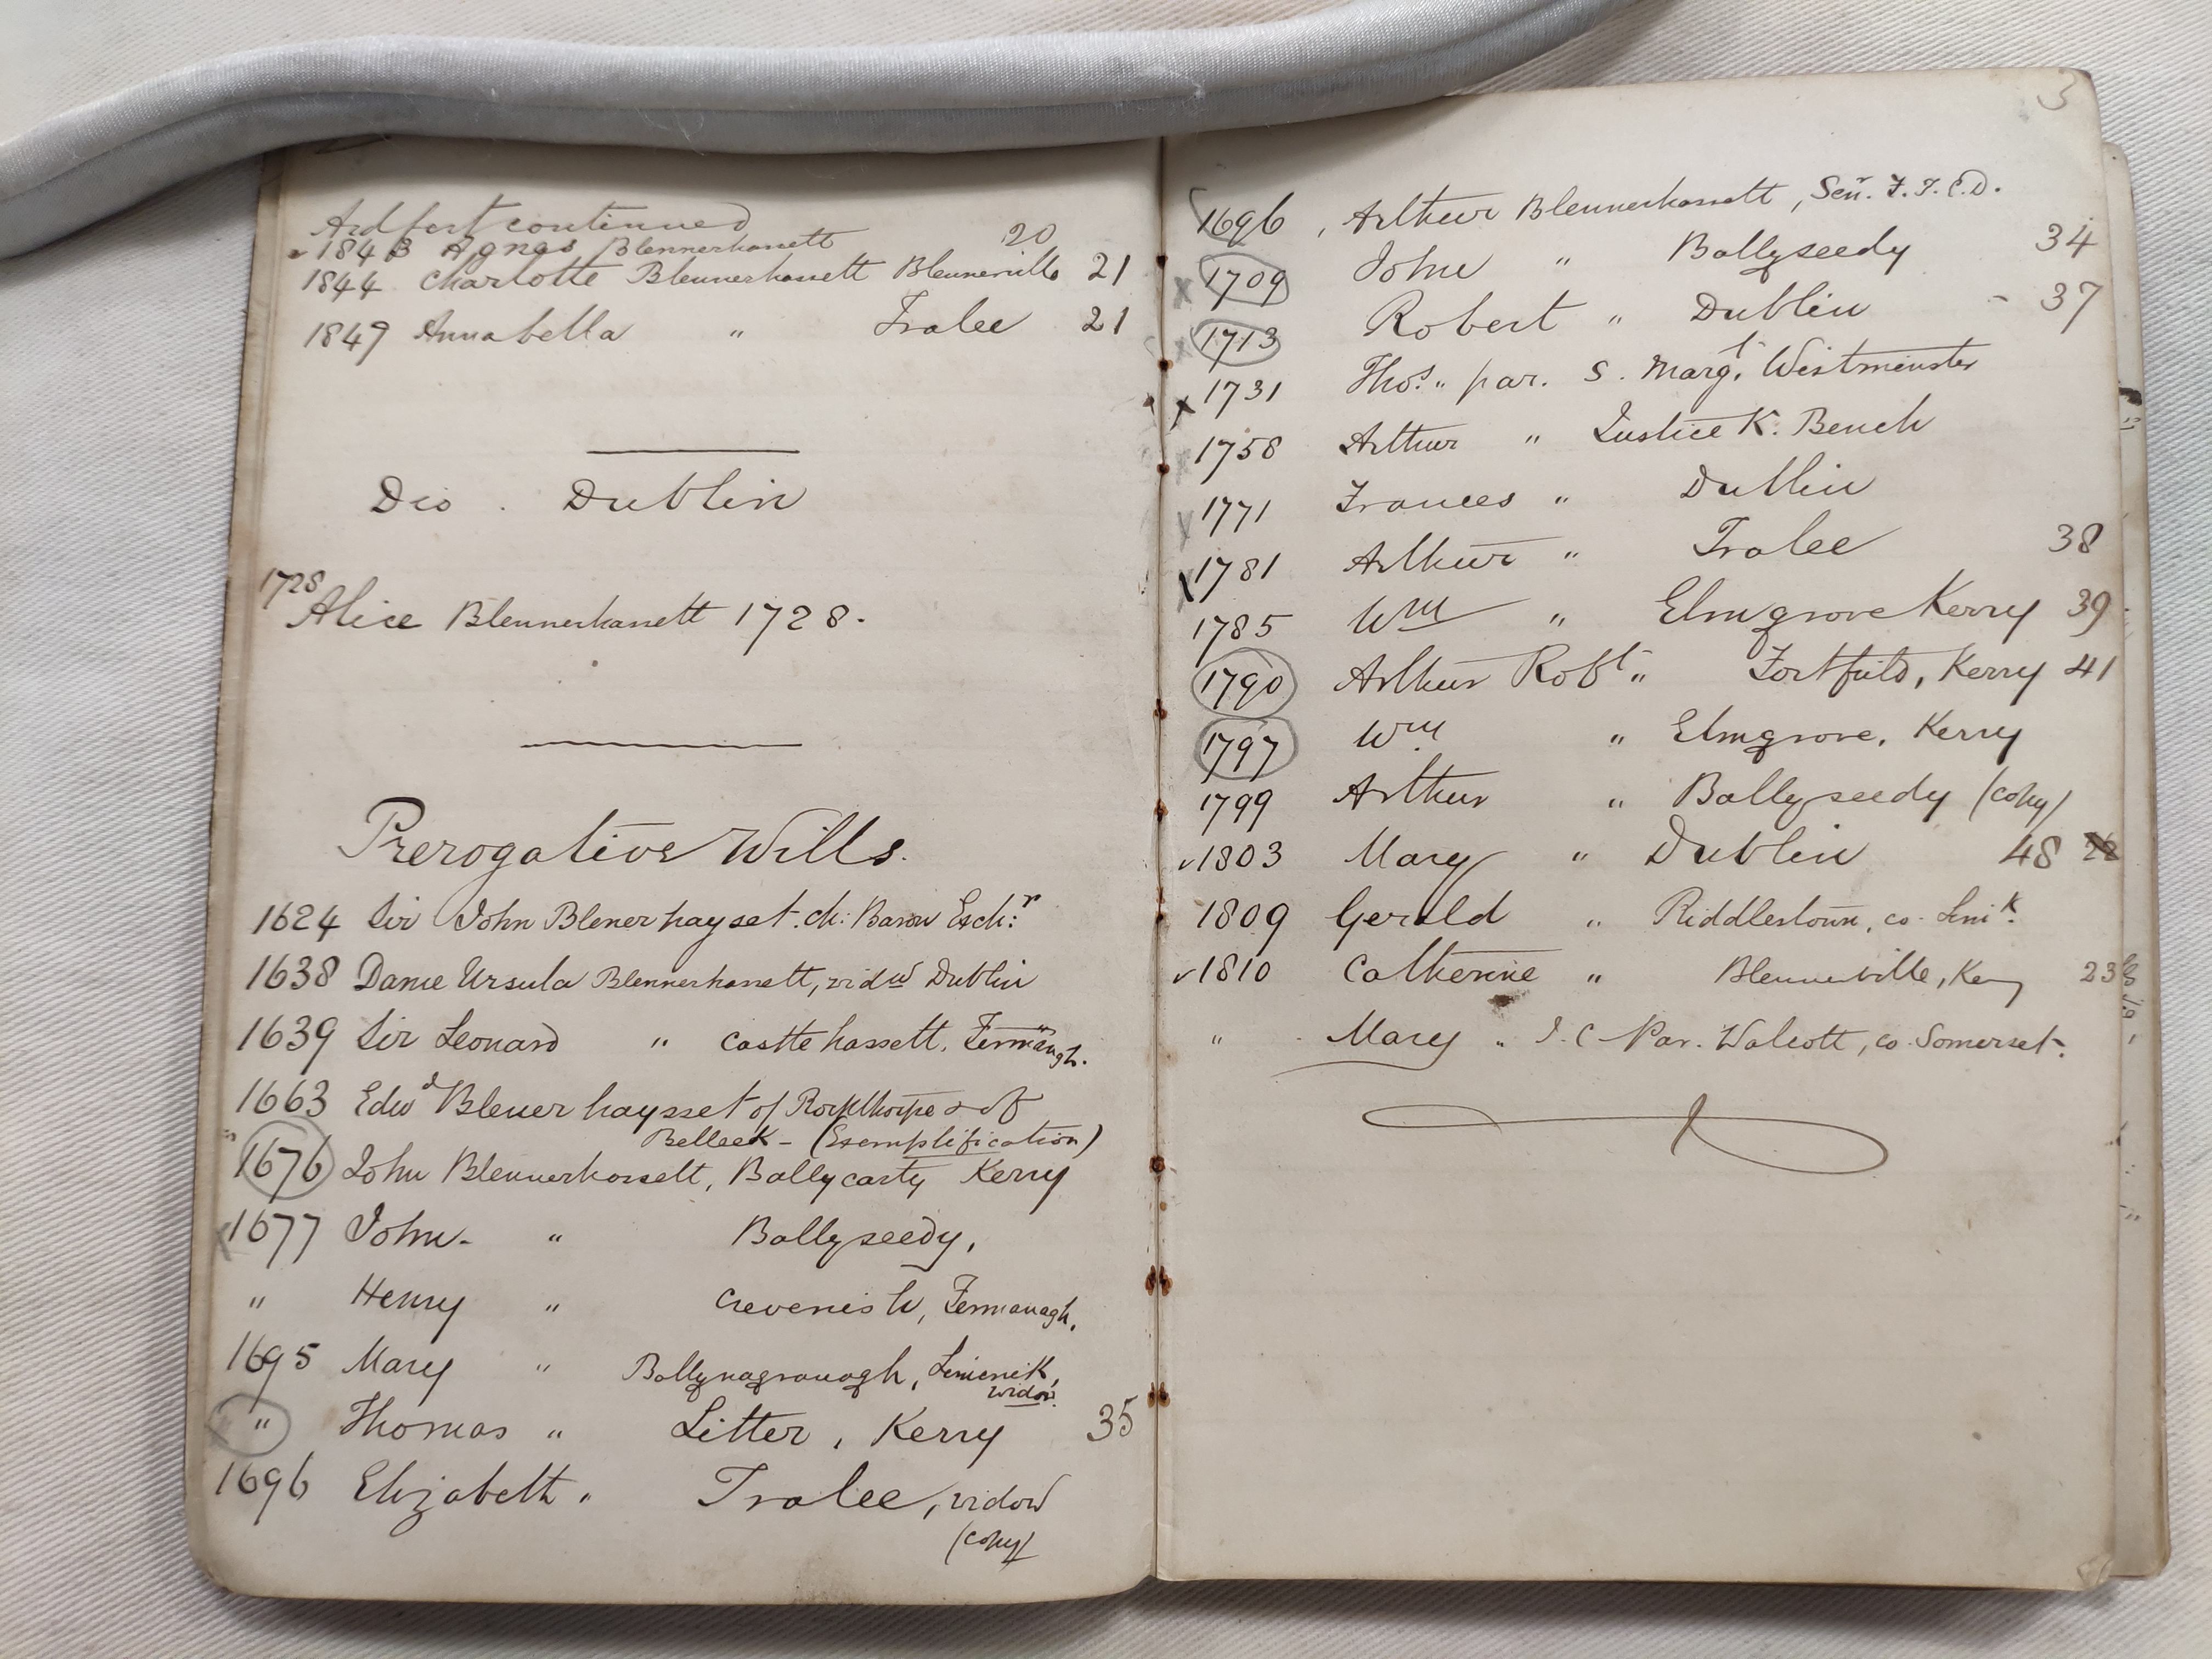 Ardfert continued
1843 Agnes Blennerhassett 20
1844 Charlotte Blennerhassett Blennerville 21
1847 Annabella " Tralee 21
Dio. Dublin
1728
Alice Blennerhassett 1728.
Prerogative Wills.
1624 Sir John Blenerhayset. Ch: Baron Exch:r
1638 Dame Ursula Blennerhassett, widw Dublin
1639 Sir Leonard " Castle hassett, Fermanagh.
1663 Edwd Blenerhaysset of Rockthorpe & of
Belleek - (Exemplification)
" 1676 John Blennerhassett, Ballycarty Kerry
x 1677 John - " Ballyseedy,
" Henry " Crevenish, Fermanagh,
1695 Mary " Ballynagranagh, Limerick,
widow.
" Thomas " Litter, Kerry 35
1696 Elizabeth " Tralee, widow
(copy)
3
1696, Arthur Blennerhassett, Senr. F.T.C.D.
x 1709 John " Ballyseedy 34
x 1713 Robert " Dublin - 37
x 1731 Thos. " par. S. Margt. Westminster
x 1758 Arthur " Justice K. Bench
x 1771 Frances " Dublin
x 1781 Arthur " Tralee 38
1785 Wm " Elmgrove Kerry 39
1790 Arthur Robt " Fortfield, Kerry 41
1797 Wm " Elmgrove, Kerry
1799 Arthur " Ballyseedy (copy)
✓1803 Mary " Dublin 48
1809 Gerald " Riddlestown, co. Limk.
✓1810 Catherine " Blennerville, Kerry 23
" Mary " Par. Walcott, co. Somerset.